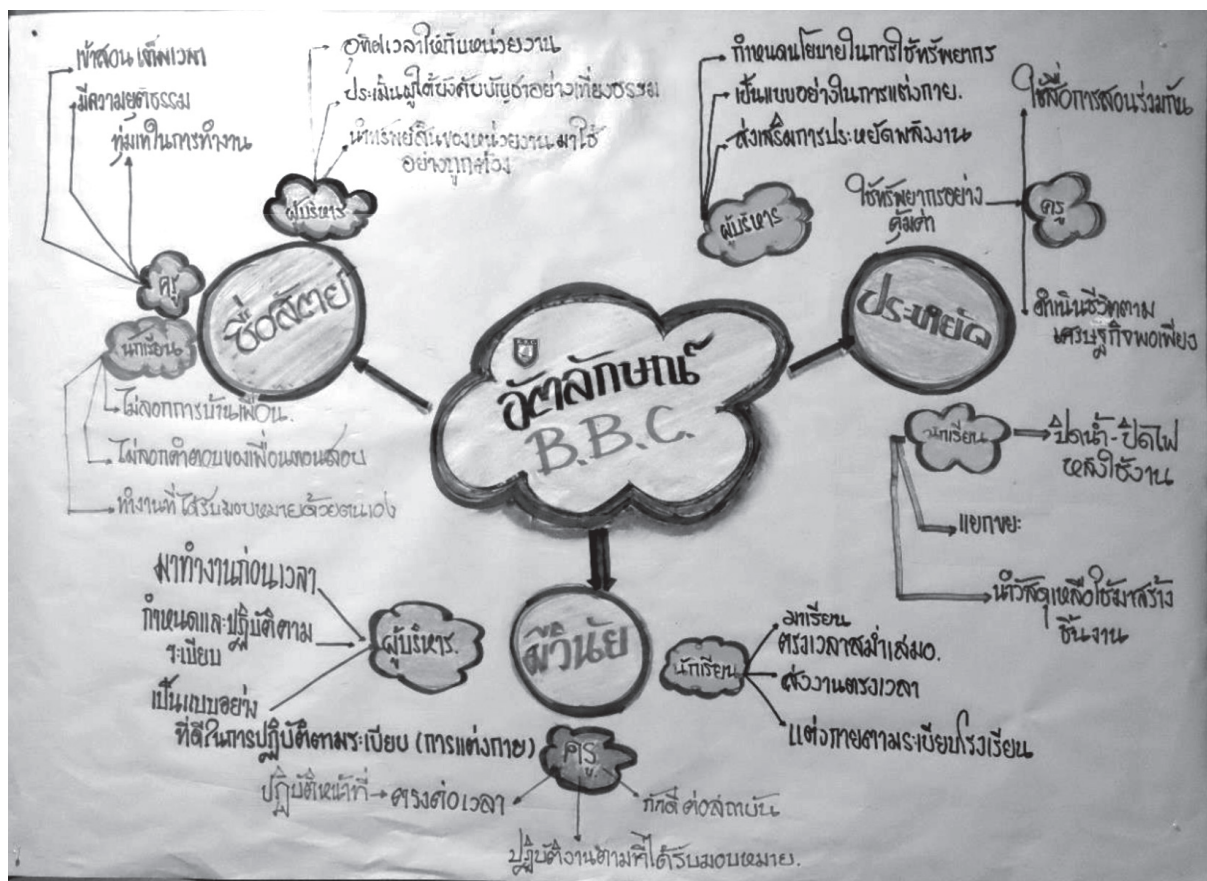 อัตลักษณ์
B.B.C.
ซื่อสัตย์
ผู้บริหาร
อุทิศเวลาให้กับหน่วยงาน
ประเมินผู้ใต้บังคับบัญชาอย่างเที่ยงธรรม
นำทรัพย์สินของหน่วยงานมาใช้
อย่างถูกต้อง
ครู
เข้าสอนเต็มเวลา
มีความยุติธรรม
ทุ่มเทในการทำงาน
นักเรียน
ไม่ลอกการบ้านเพื่อน.
ไม่ลอกคำตอบของเพื่อนตอนสอบ
ทำงานที่ได้รับมอบหมายด้วยตนเอง
ประหยัด
ผู้บริหาร
กำหนดนโยบายในการใช้ทรัพยากร
เป็นแบบอย่างในการแต่งกาย.
ส่งเสริมการประหยัดพลังงาน
ครู
ใช้สื่อการสอนร่วมกัน
ใช้ทรัพยากรอย่าง
คุ้มค่า
ดำเนินชีวิตตาม
เศรษฐกิจพอเพียง
นักเรียน
ปิดน้ำ-ปิดไฟ
หลังใช้งาน
แยกขยะ
นำวัสดุเหลือใช้มาสร้าง
ชิ้นงาน
มีวินัย
ผู้บริหาร.
มาทำงานก่อนเวลา
กำหนดและปฏิบัติตาม
ระเบียบ
เป็นแบบอย่าง
ที่ดีในการปฏิบัติตามระเบียบ (การแต่งกาย)
นักเรียน
มาเรียน
ตรงเวลาสม่ำเสมอ.
ส่งงานตรงเวลา
แต่งกายตามระเบียบโรงเรียน
ครู
ปฏิบัติหน้าที่ → ตรงต่อเวลา
ภักดีต่อสถาบัน
ปฏิบัติงานตามที่ได้รับมอบหมาย.